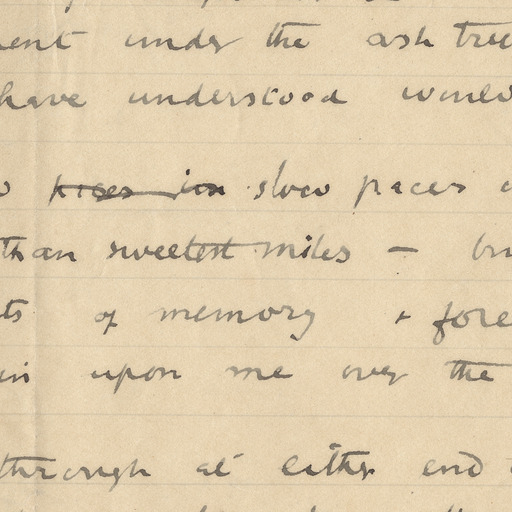 ent under the ash tree
have understood would
slow paces
than sweetest miles — bu
ts of memory + fore
in upon me over the
through at either end